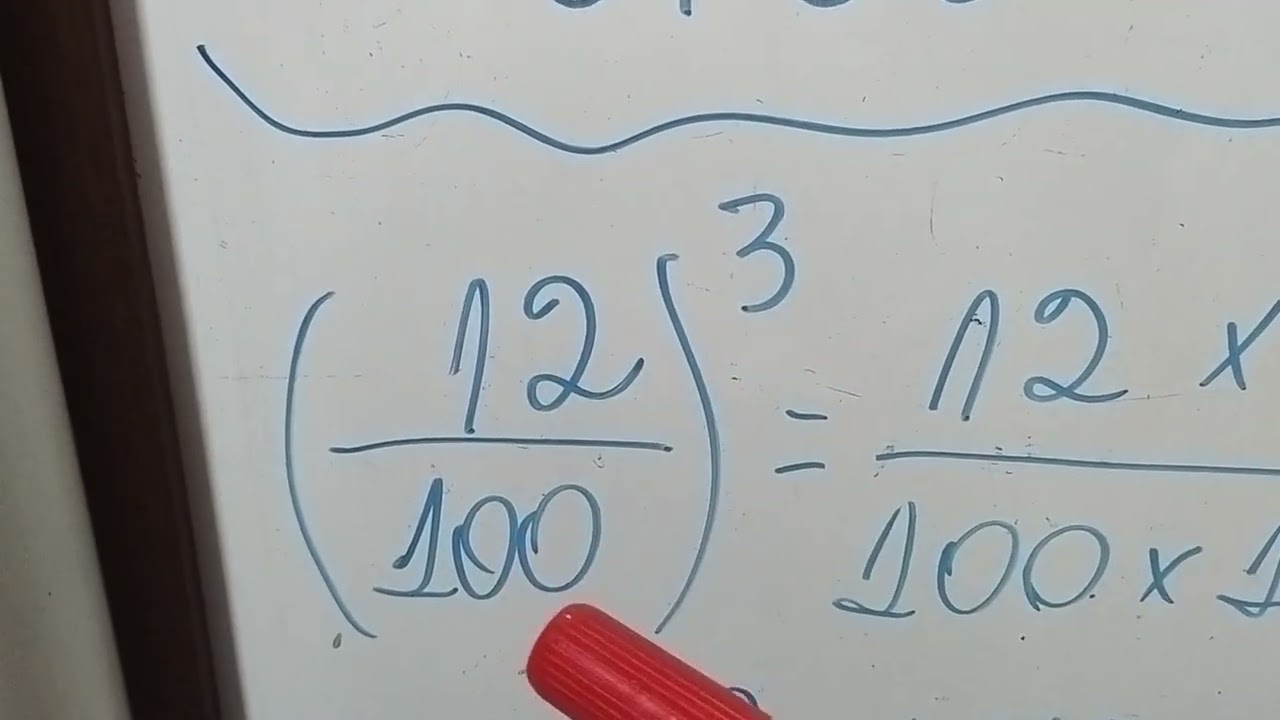 (12/100)³ = 12 ×
100 × 1